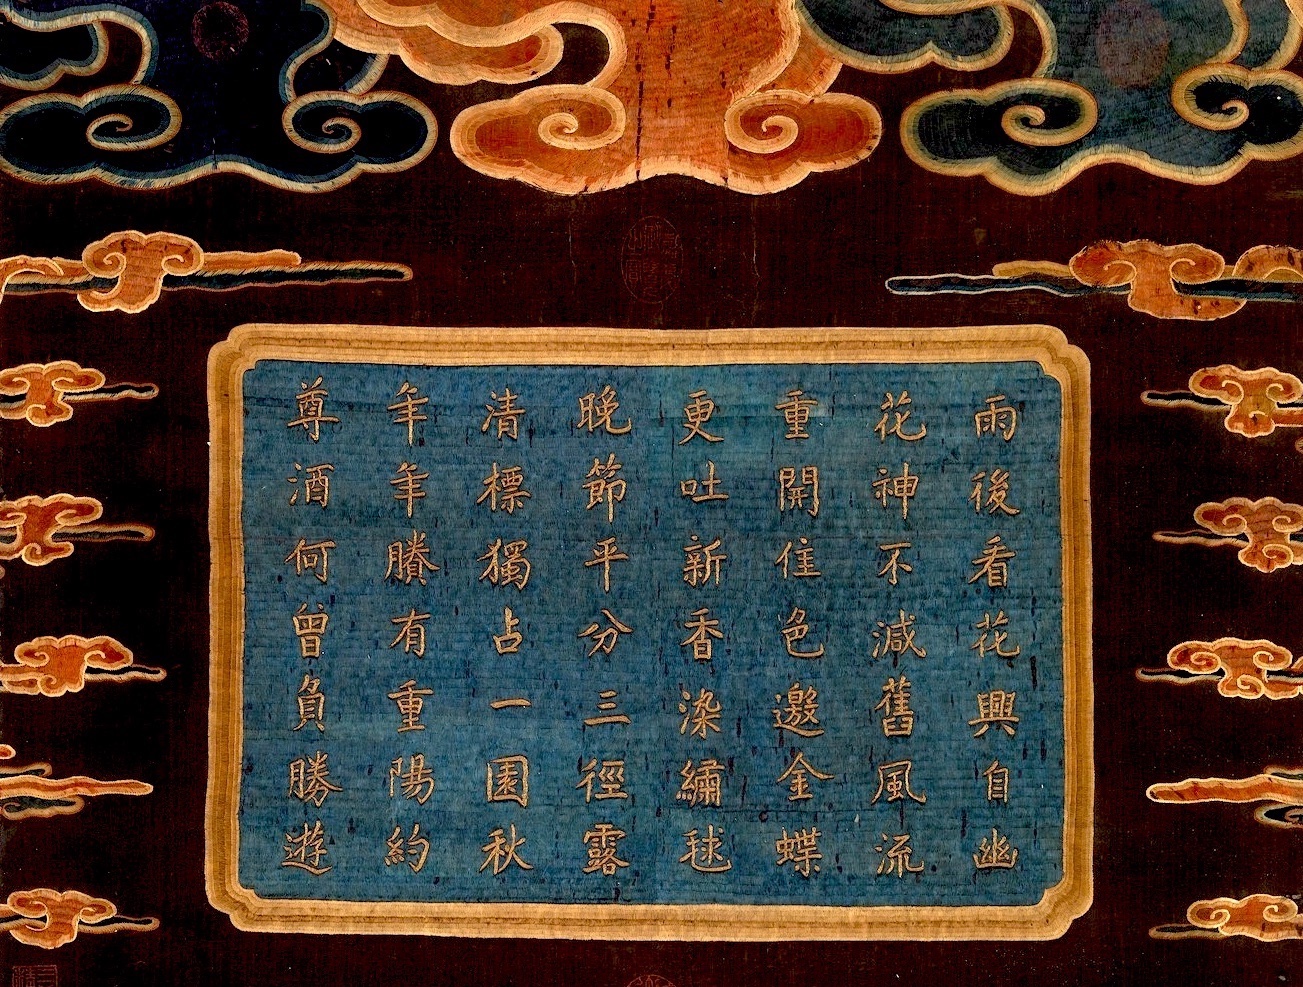 雨後看花興自幽
花神不減舊風流
重開佳色邀金蝶
更吐新香染繡毬
晚節平分三徑露
清標獨占一園秋
年年賸有重陽約
尊酒何曾負勝遊